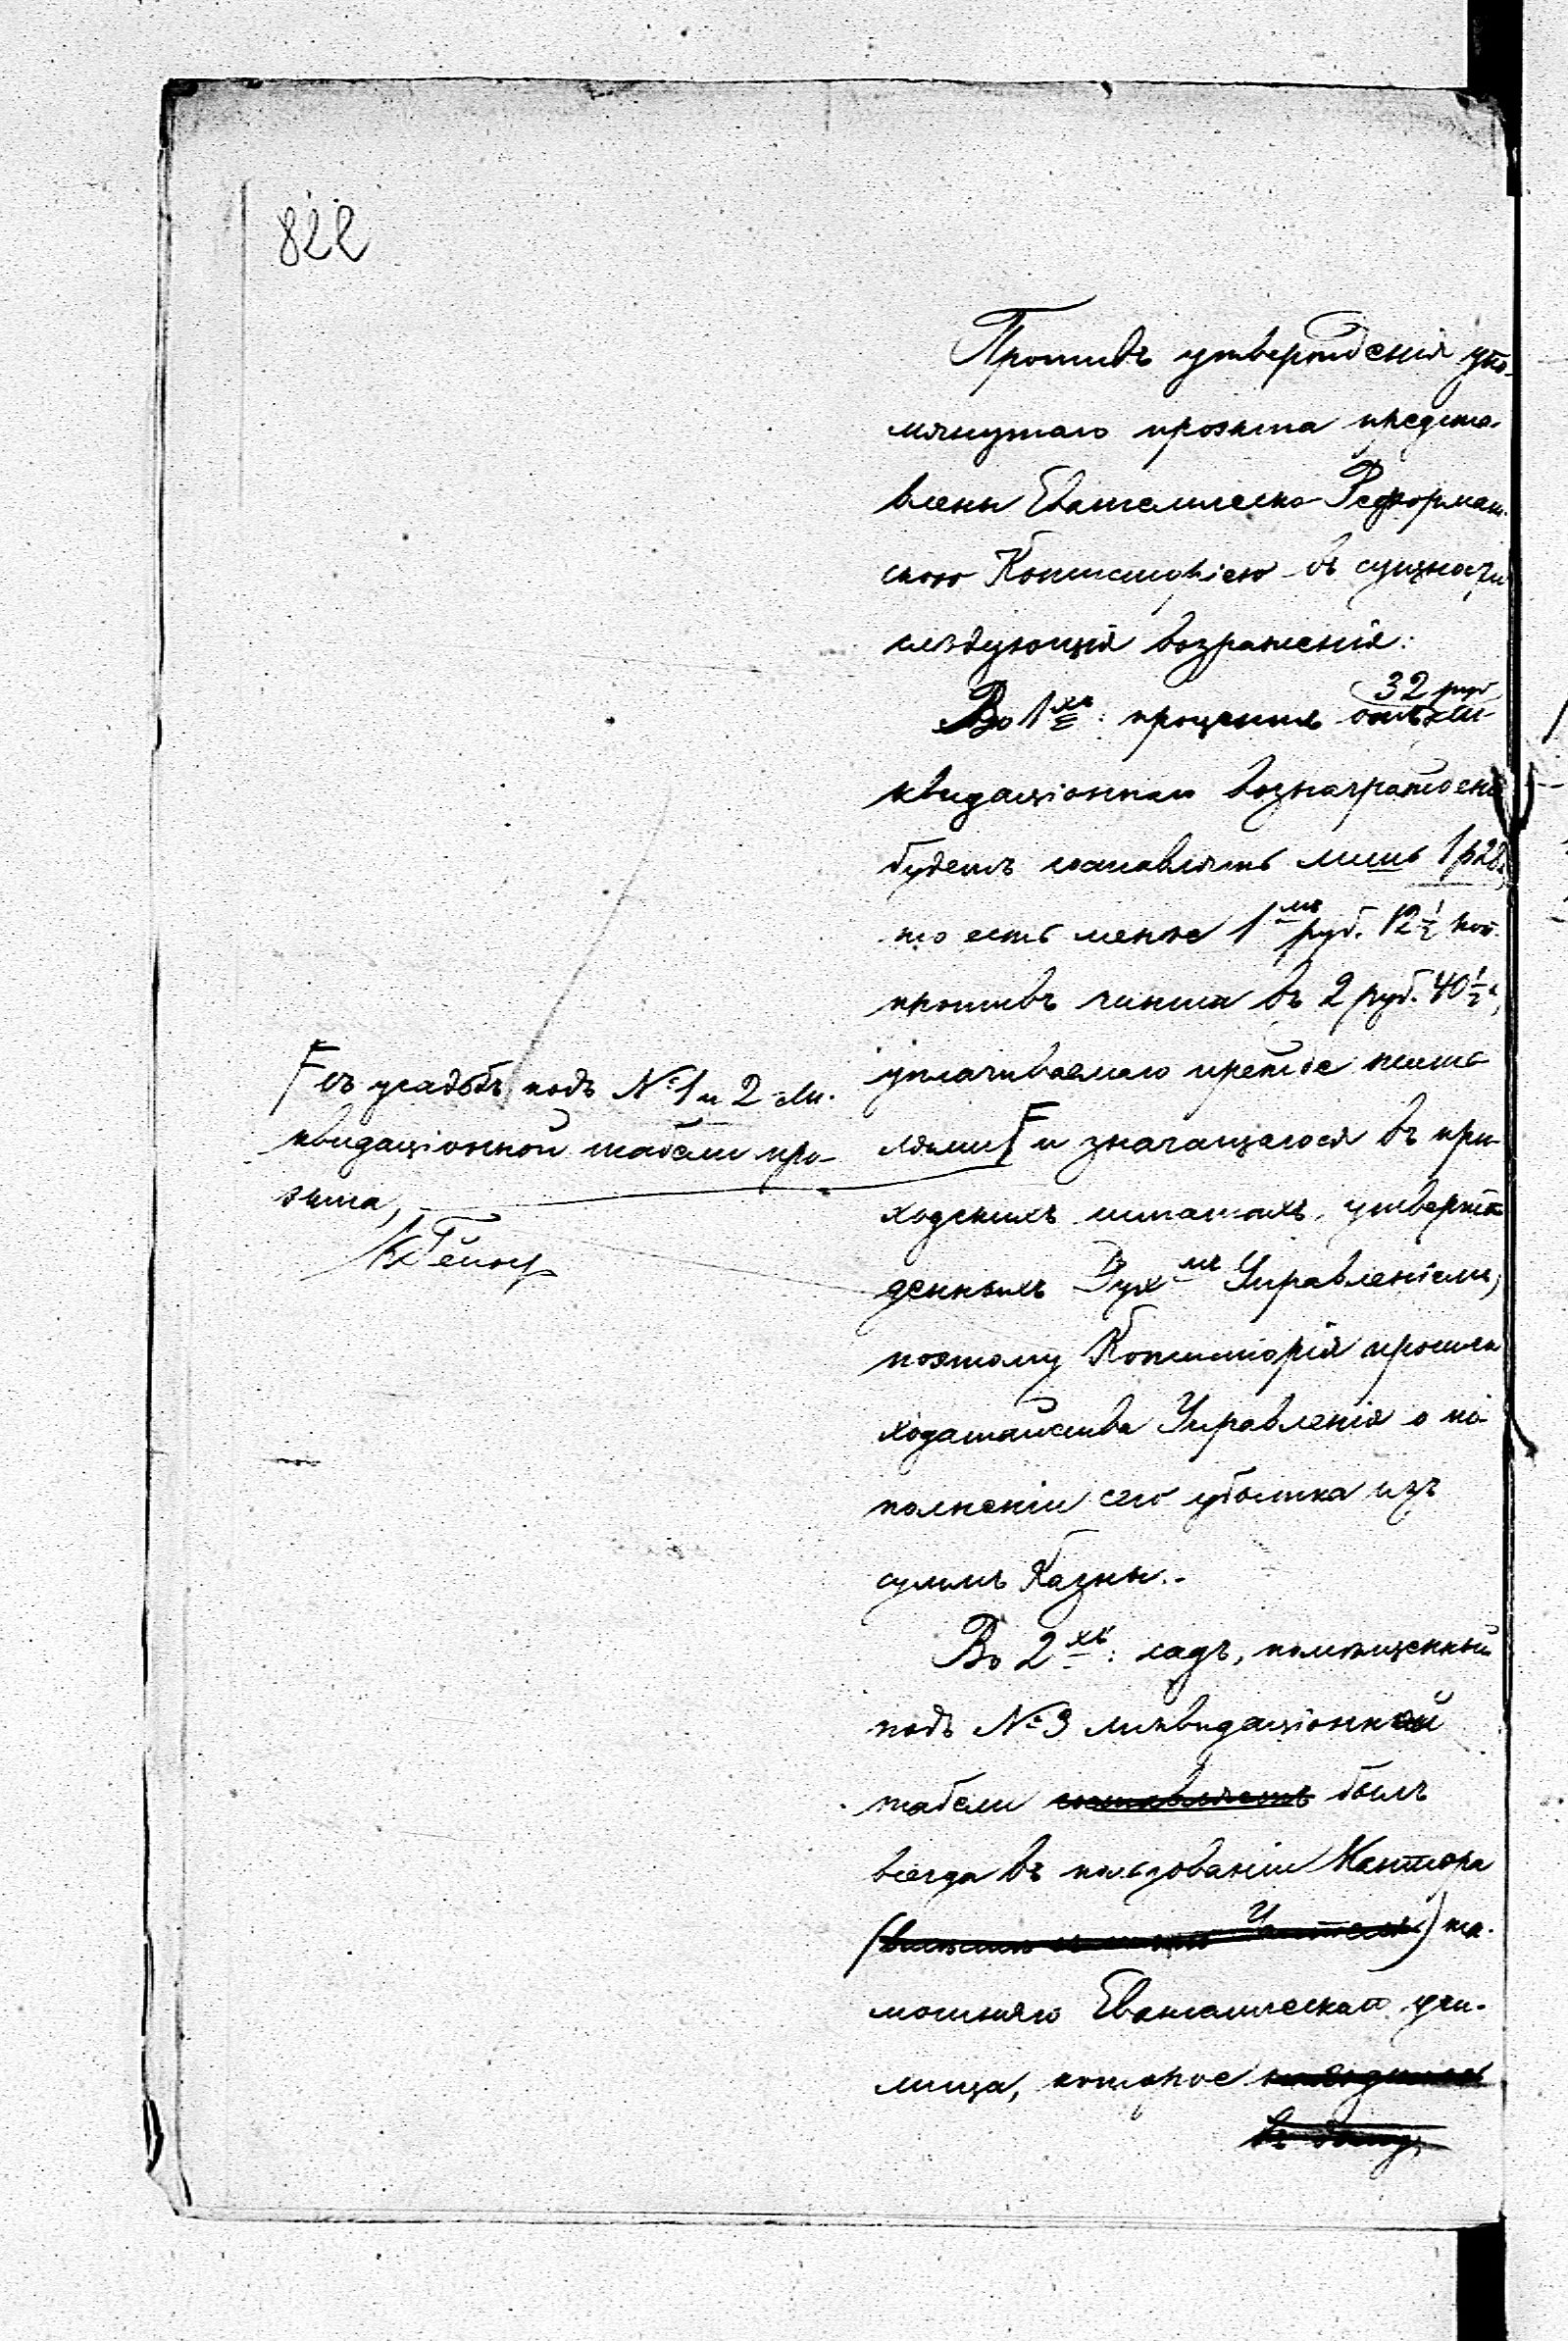 822
Противъ утвержденія упо-
мянутаго проэкта предста-
влены Евангелическо-Реформат-
скою Консисторіею въ сущности
слѣдующія возраженія:
32 руб
Во 1хъ: проценты отъ ли-
квидаціоннаго вознагражденія
будетъ составлять лишь 1 р 28
то есть менѣе 1мъ руб. 12 1/2 коп.
противъ чинша въ 2 руб. 40 1/2 к,
уплачиваемаго прежде жите-
лями и значащагося въ при-
ходскихъ штатахъ, утверж-
денныхъ Дух мъ Управленіемъ,
поэтому Консисторія просила
ходатайства Управленія о по-
полненіи сего убытка изъ
суммъ Казны.-
Во 2хъ: садъ, помѣщенный
подъ №3 ликвидаціонной
табели составляетъ былъ
всегда въ пользованіи Кантора
( Учителя) та-
мошняго Евангелическаго учи-
лища, которое находилось
въ дому,
съ усадьбъ подъ №1 и 2 ли-
квидаціонной табели про-
экта,